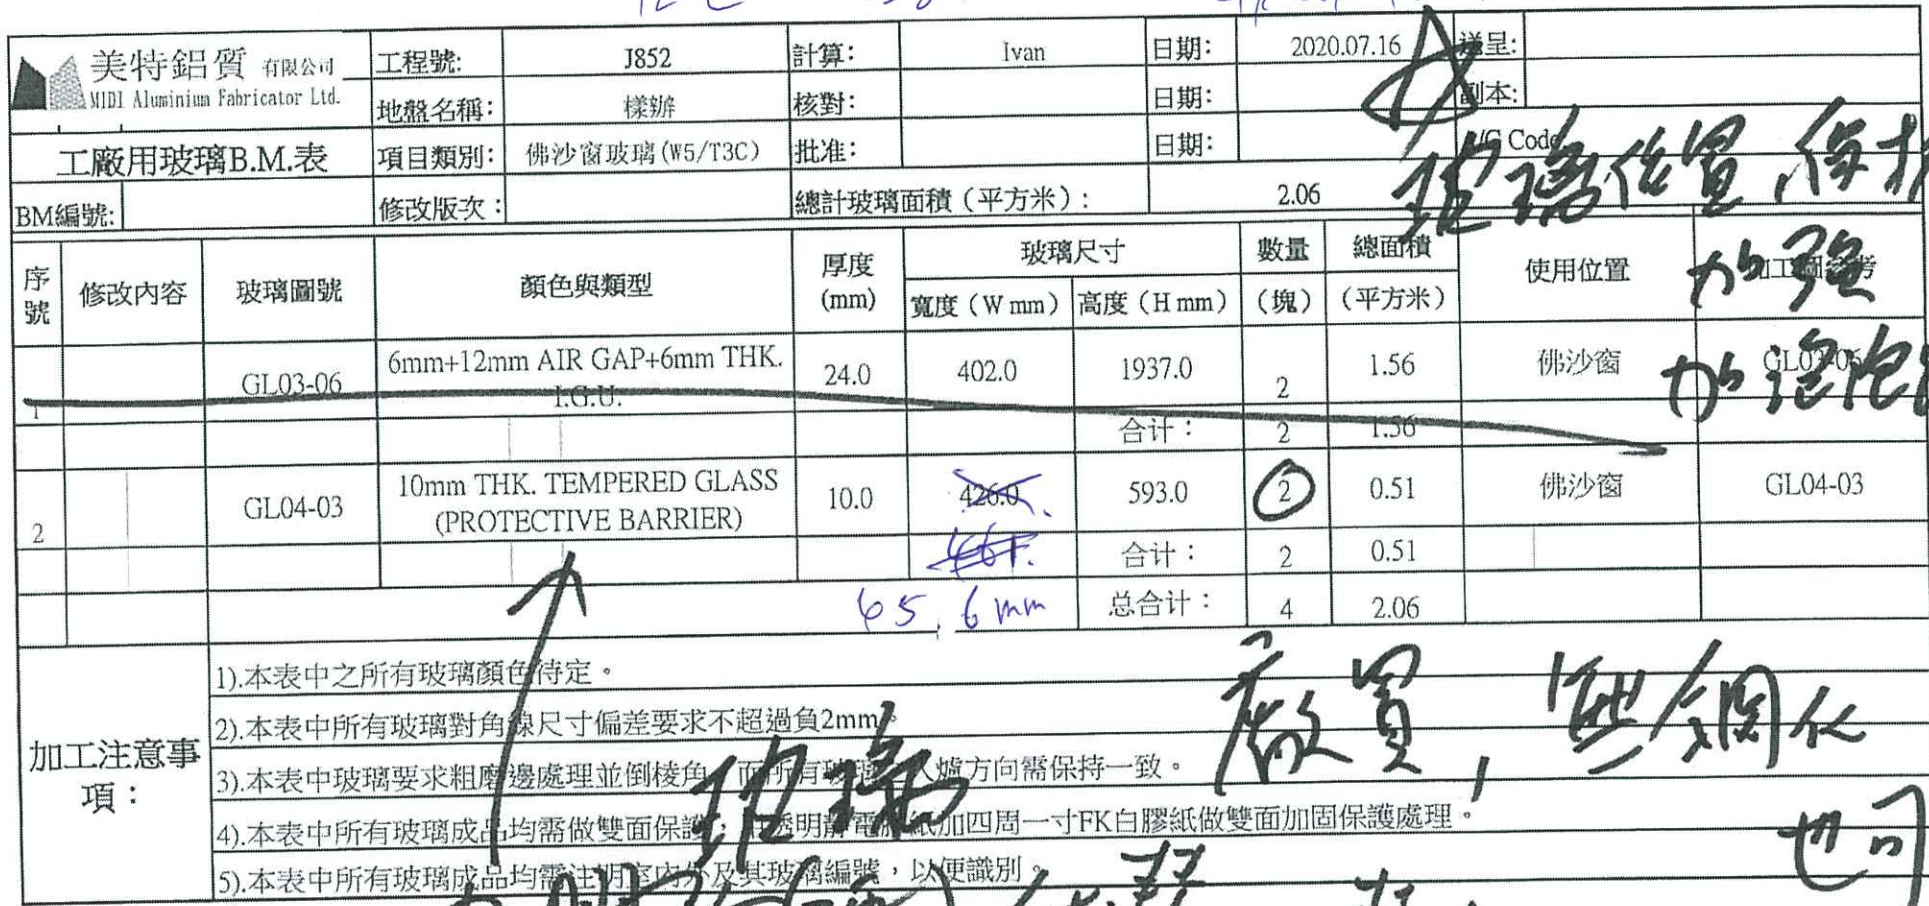 美特鋁質 有限公司
MIDI Aluminium Fabricator Ltd.
工程號: J852 計算: Ivan 日期: 2020.07.16 送呈:
地盤名稱: 樣辦 核對: 日期: 副本:
工廠用玻璃B.M.表 項目類別: 佛沙窗玻璃(W5/T3C) 批准: 日期: Code
BM編號: 修改版次: 總計玻璃面積（平方米）: 2.06
玻璃位置
加強
序號 修改內容 玻璃圖號 顏色與類型 厚度(mm) 玻璃尺寸 數量 總面積 使用位置
寬度（W mm） 高度（H mm） （塊） （平方米）
1 GL03-06 6mm+12mm AIR GAP+6mm THK. I.G.U. 24.0 402.0 1937.0 2 1.56 佛沙窗 GL03-06
合计： 2 1.56
2 GL04-03 10mm THK. TEMPERED GLASS (PROTECTIVE BARRIER) 10.0 426.0 593.0 2 0.51 佛沙窗 GL04-03
461. 合计： 2 0.51
总合计： 4 2.06
加工注意事項：
1).本表中之所有玻璃顏色待定。
2).本表中所有玻璃對角線尺寸偏差要求不超過負2mm。
3).本表中玻璃要求粗磨邊處理並倒棱角，而所有玻璃入爐方向需保持一致。
4).本表中所有玻璃成品均需做雙面保護；透明靜電膠紙加四周一寸FK白膠紙做雙面加固保護處理。
5).本表中所有玻璃成品均需注明室內外及其玻璃編號，以便識別。
玻璃
廠買，
鋼化
也可